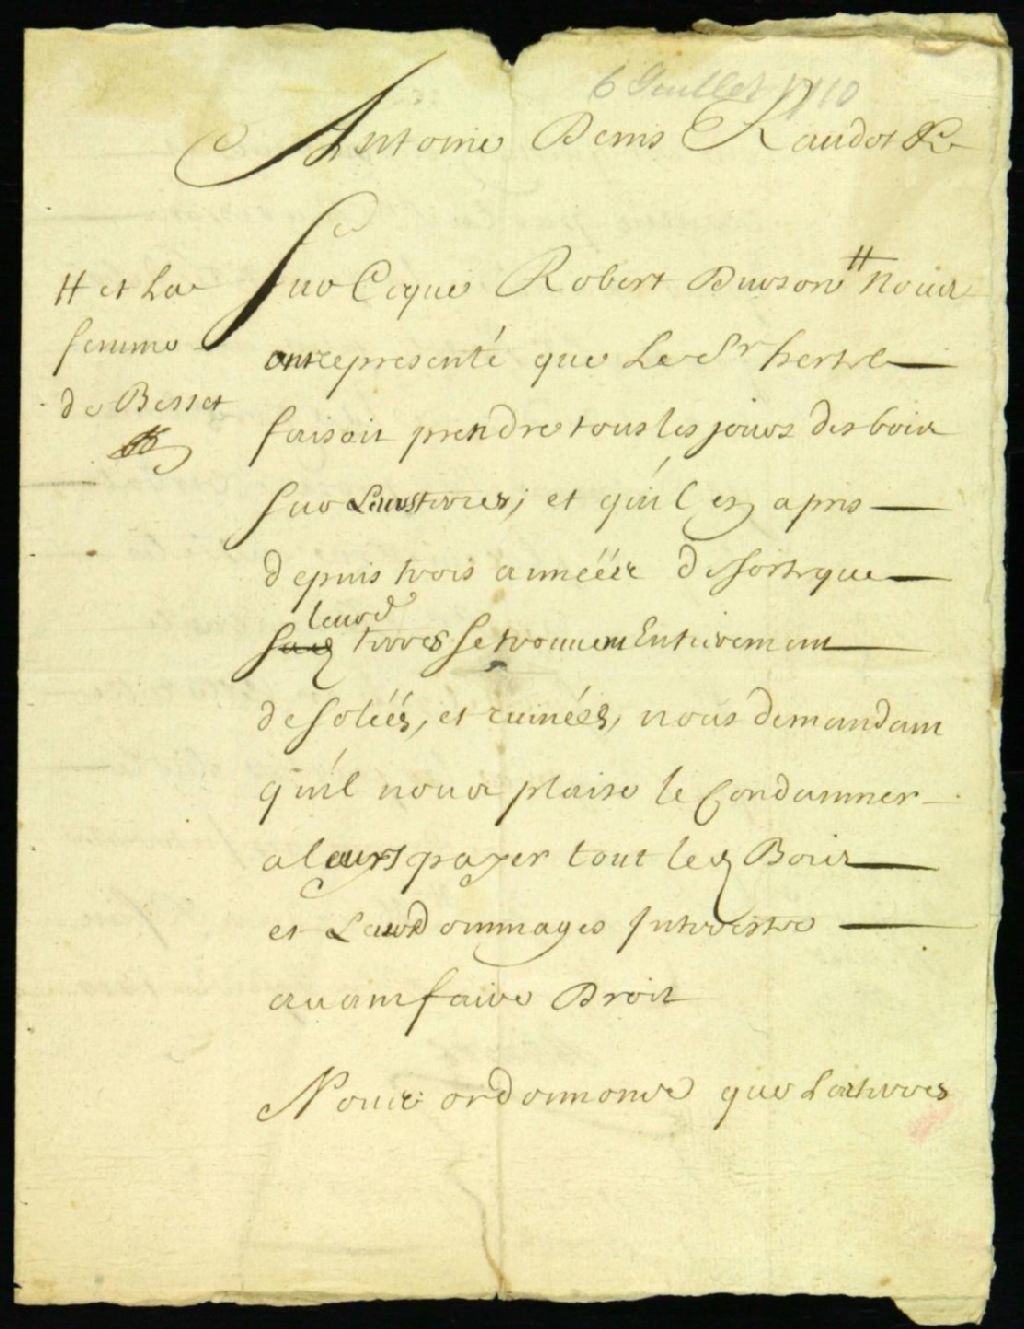 6 Juillet 1710
Antoine Denis Raudot &c
Sur Ceque Robert Buoson # Nous
# et La
femme
de Besset
ont representé que Le Sr hertel
faisoit prendre tous les jours des bois
sur Leurs terres, et qu'il en a pris
depuis trois années desorte que
leurs
terres se trouvent Entierement
desoléés, et ruinéés, nous demandant
qu'il nous plaise le Condamner
a leurs payer tout les Bois
et Leurs dommages Interests
avant faire Droit
Nous ordonnons que Les terres